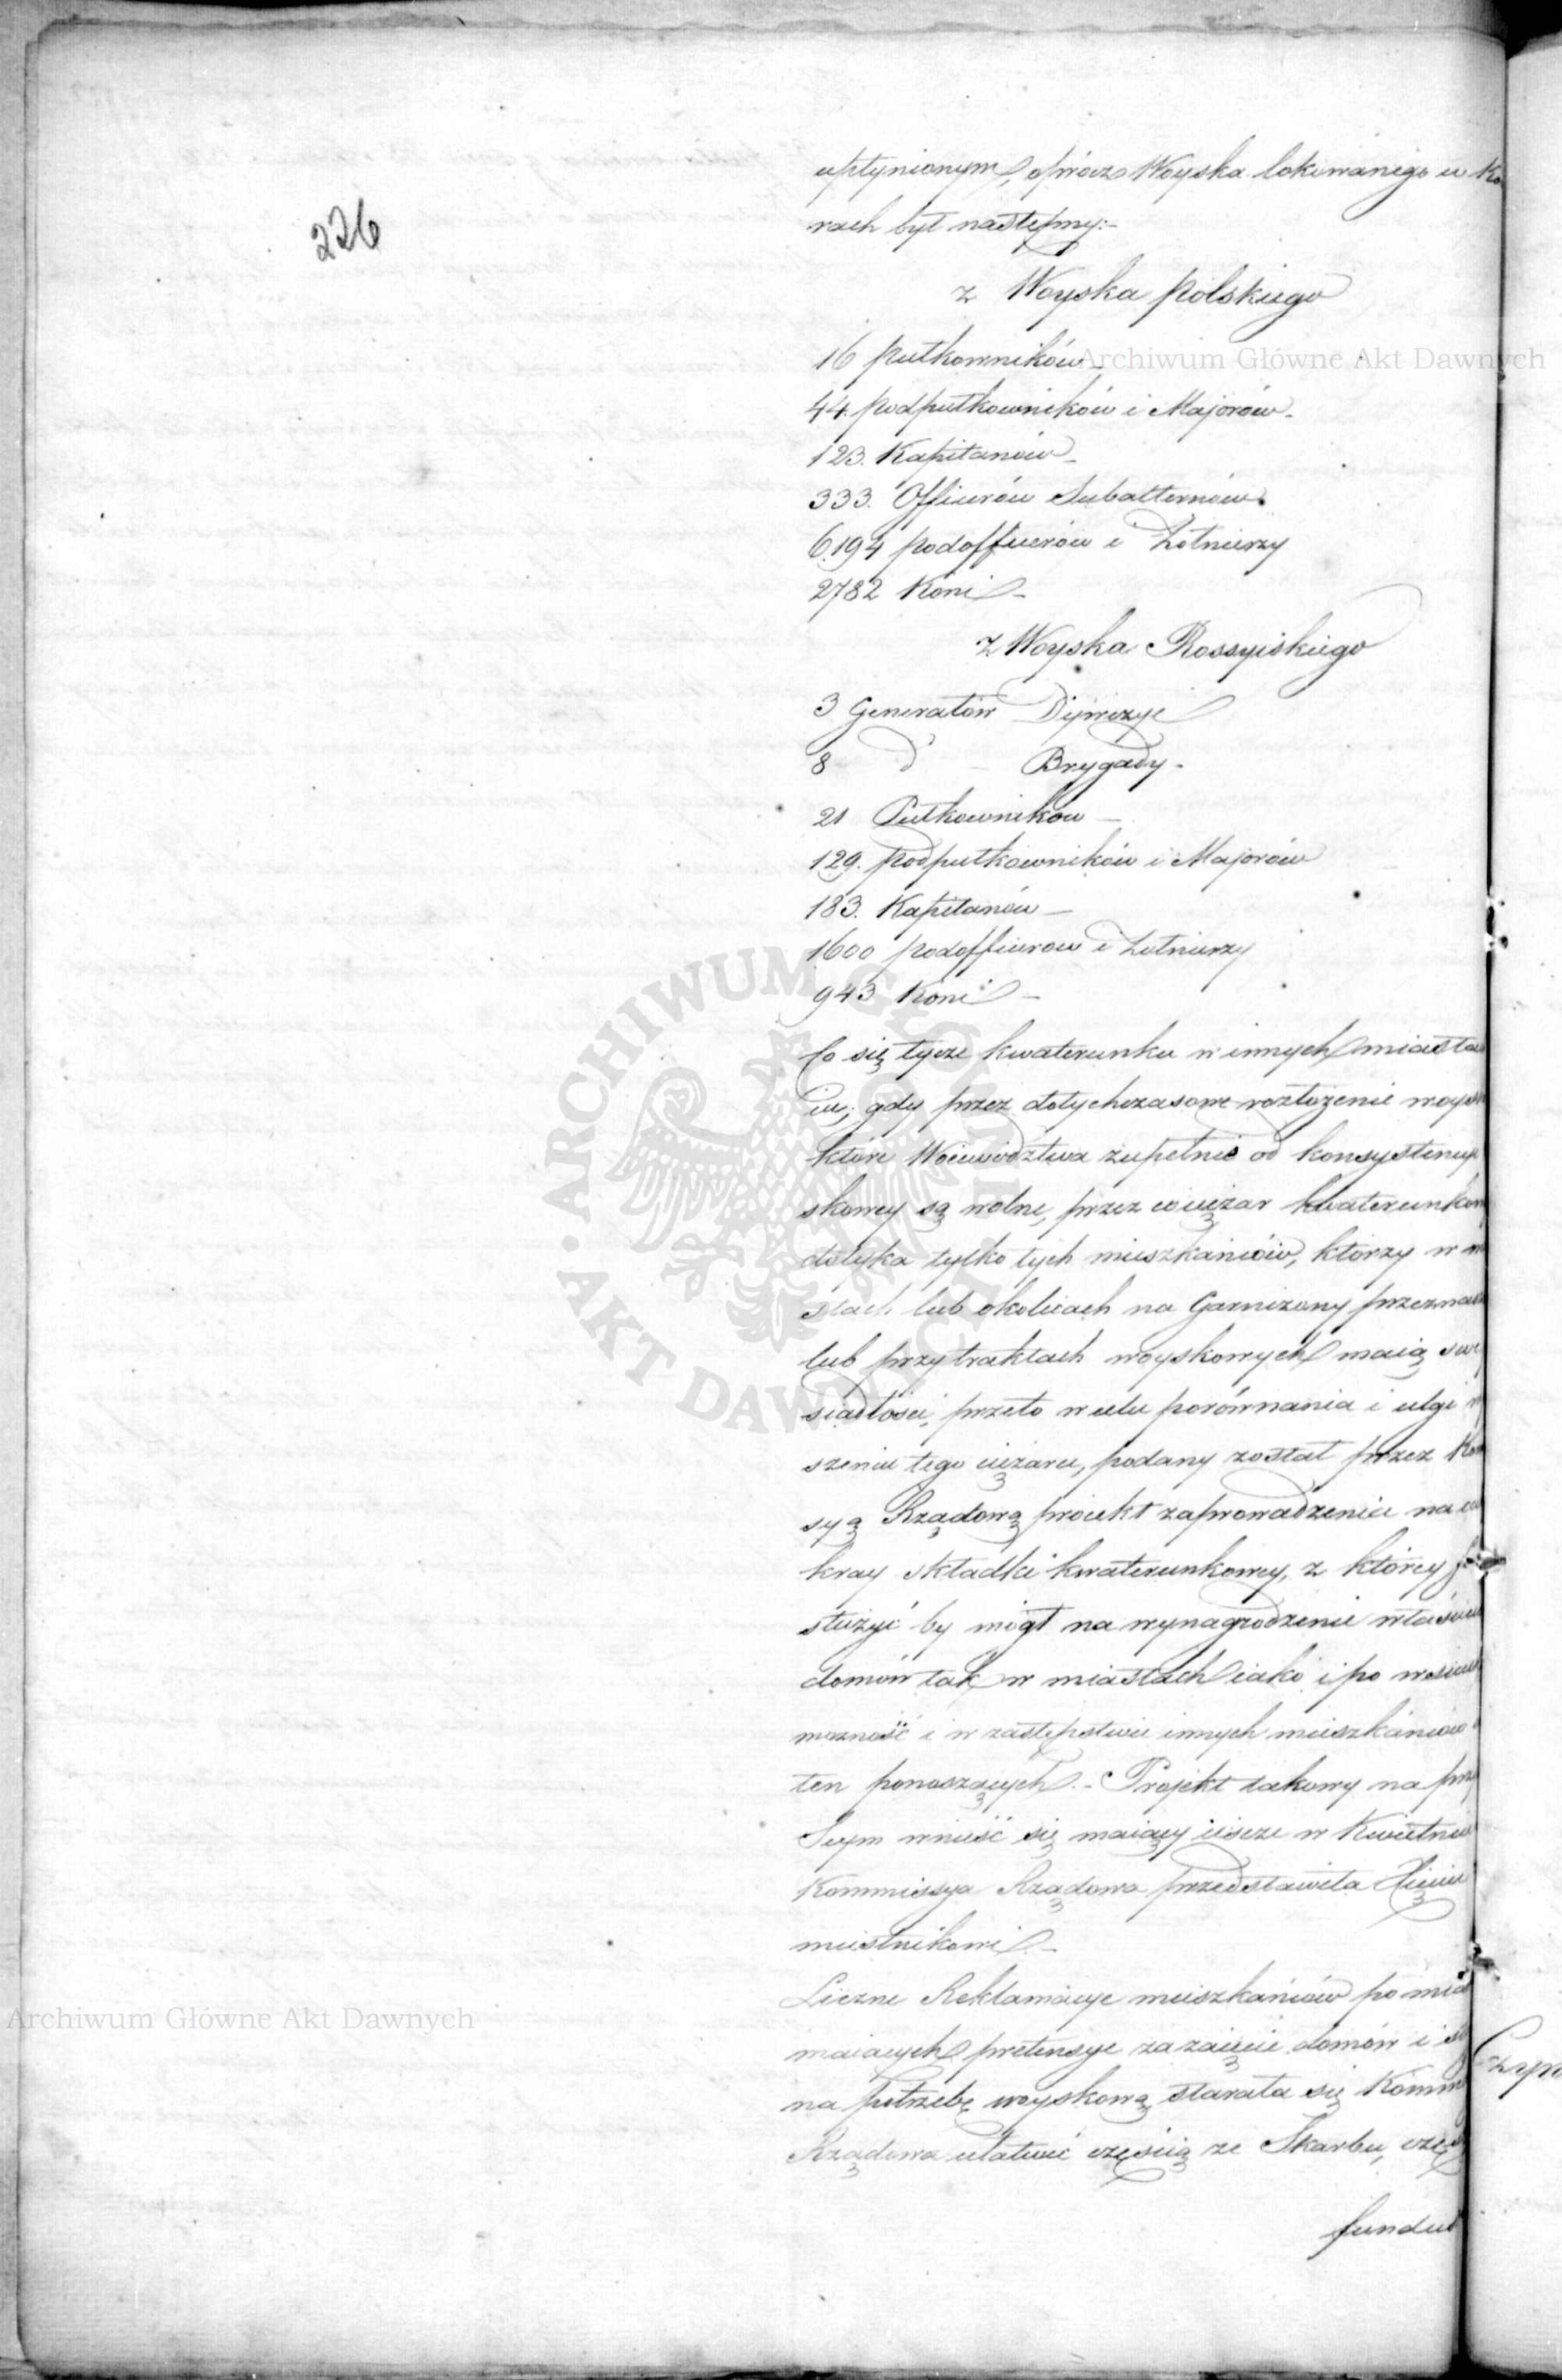 226
upłynionym, oprócz Woyska lokowanego w Ko
rach był następny:-
z Woyska Polskiego
16 Pułkowników -
44. Podpułkowników i Majorów -
123. Kapitanów -
333. Officerów Subalternów.
6.194 podofficerów i Żołnierzy
2782 Koni -
z Woyska Rossyiskiego
3 Generałów Dywizyi
8 d° - Brygady -
21 Pułkowników -
129. Podpułkowników i Majorów
183. Kapitanów -
1600 podofficerow i Żołnierzy
943 Koni -
Co się tycze kwaterunku w innych miasta
gdy przez dotychczasowe rozłożenie woys
które Woiewództwa zupełnie od konsystencyi
skowey są wolne, przez co ciężar kwaterunkow
dotyka tylko tych mieszkańców, którzy w m
stach lub okolicach na Garnizony przeznacz
lub przy traktach woyskowych maią swe
siadłości, przeto w celu porównania i ulgi w
szeniu tego ciężaru, podany został przez Kom
syą Rządową proiekt zaprowadzenia na ca
kray składki kwaterunkowey, z którey f
służyć by mógł na wynagrodzenie właścic
domów tak w miastach iako i po wsiach
możność i w zastępstwie innych mieszkańców
ten ponoszących. - Projekt takowy na prz
Seym wnieść się maiący ieszcze w Kwietniu
Kommissya Rządowa przedstawiła Xięciu
miestnikowi -
Liczne Reklamacye mieszkańców po mia
maiących pretensye za zaięcie domów i s
na potrzebę woyskową starała się Komm
Rządowa ułatwić częścią ze Skarbu, częś
fundus
Archiwum Główne Akt Dawnych
ARCHIWUM GŁÓWNE AKT DAWNYCH
Archiwum Główne Akt Dawnych